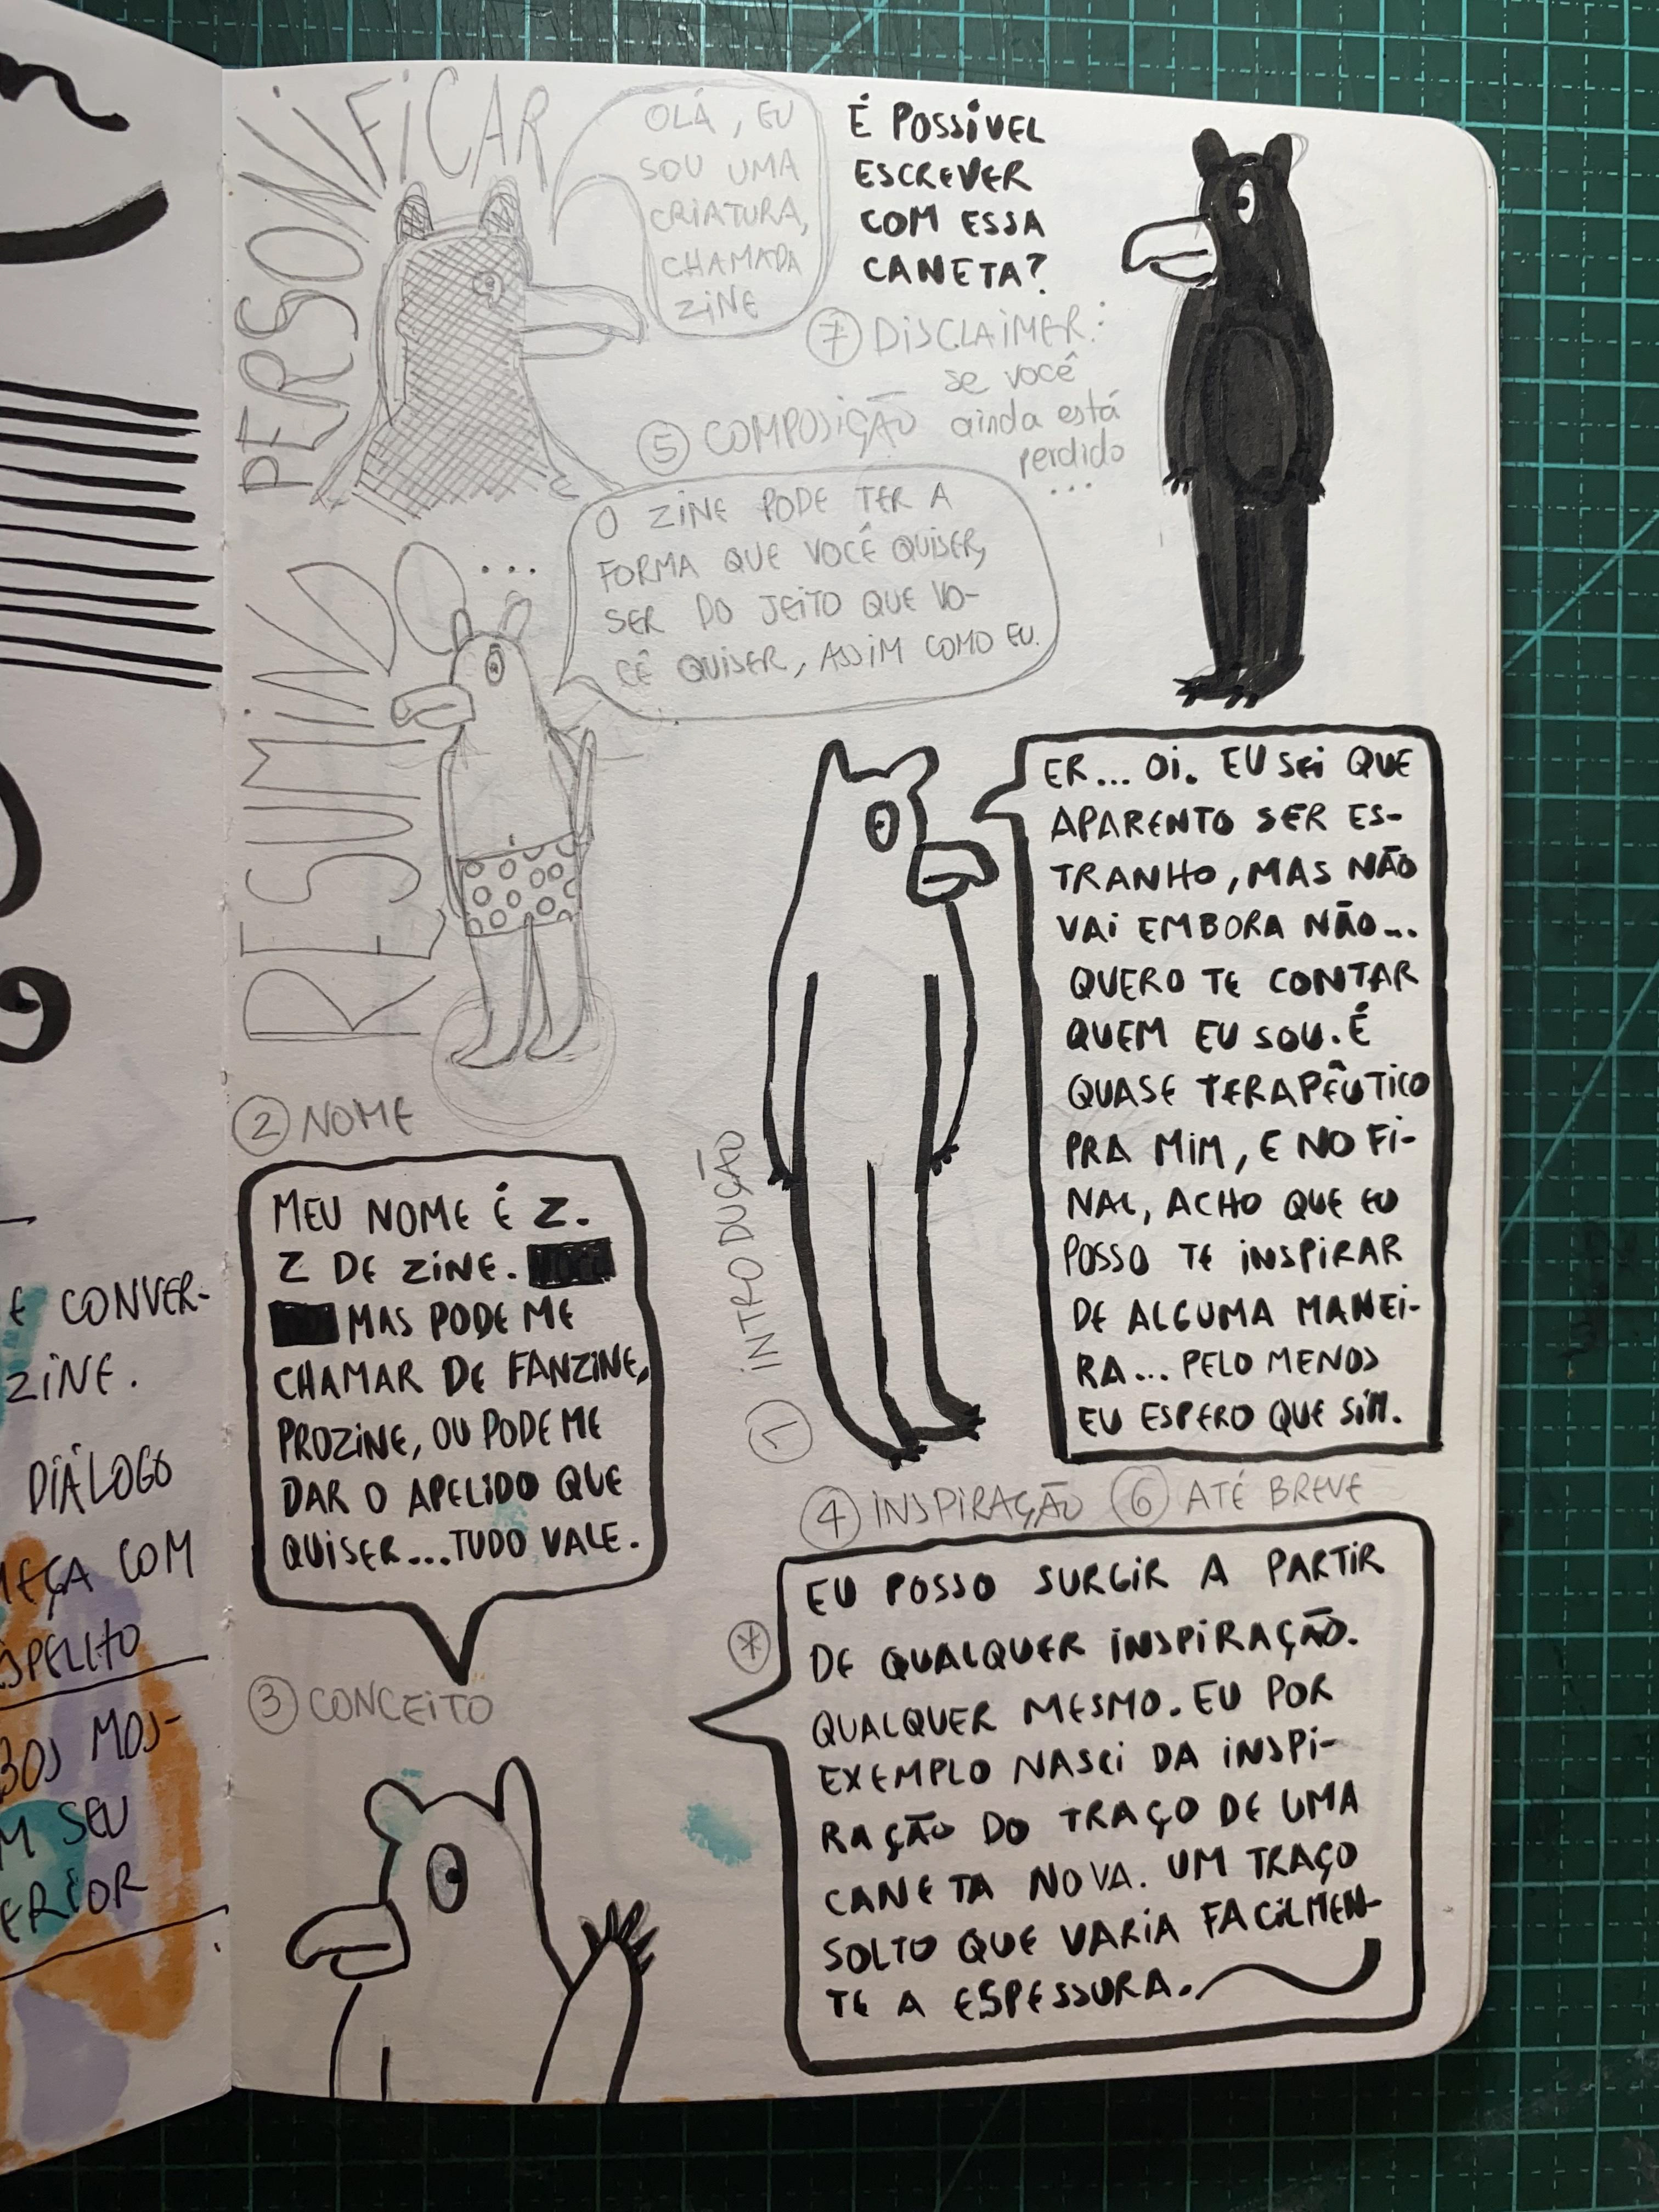 E CONVER-
ZINE.
DIÁLOGO
COM
MOS-
M SEU
PERSONIFICAR
OLÁ, EU
SOU UMA
CRIATURA,
CHAMADA
ZINE
É POSSÍVEL
ESCREVER
COM ESSA
CANETA?
7 DISCLAIMER:
se você
ainda está
perdido
...
5 COMPOSIÇÃO
RESUMINDO...
O ZINE PODE TER A
FORMA QUE VOCÊ QUISER,
SER DO JEITO QUE VO-
CÊ QUISER, ASSIM COMO EU.
1 INTRODUÇÃO
ER... OI. EU SEI QUE
APARENTO SER ES-
TRANHO, MAS NÃO
VAI EMBORA NÃO...
QUERO TE CONTAR
QUEM EU SOU. É
QUASE TERAPÊUTICO
PRA MIM, E NO FI-
NAL, ACHO QUE EU
POSSO TE INSPIRAR
DE ALGUMA MANEI-
RA... PELO MENOS
EU ESPERO QUE SIM.
2 NOME
MEU NOME É Z.
Z DE ZINE.
MAS PODE ME
CHAMAR DE FANZINE,
PROZINE, OU PODE ME
DAR O APELIDO QUE
QUISER...TUDO VALE.
3 CONCEITO
4 INSPIRAÇÃO 6 ATÉ BREVE
*
EU POSSO SURGIR A PARTIR
DE QUALQUER INSPIRAÇÃO.
QUALQUER MESMO. EU POR
EXEMPLO NASCI DA INSPI-
RAÇÃO DO TRAÇO DE UMA
CANETA NOVA. UM TRAÇO
SOLTO QUE VARIA FACILMEN-
TE A ESPESSURA.